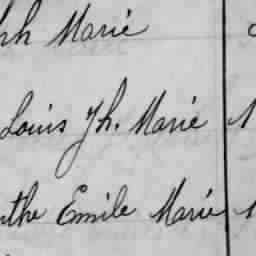 ph Marie
Louis Jh. Marie
the Emile Marie